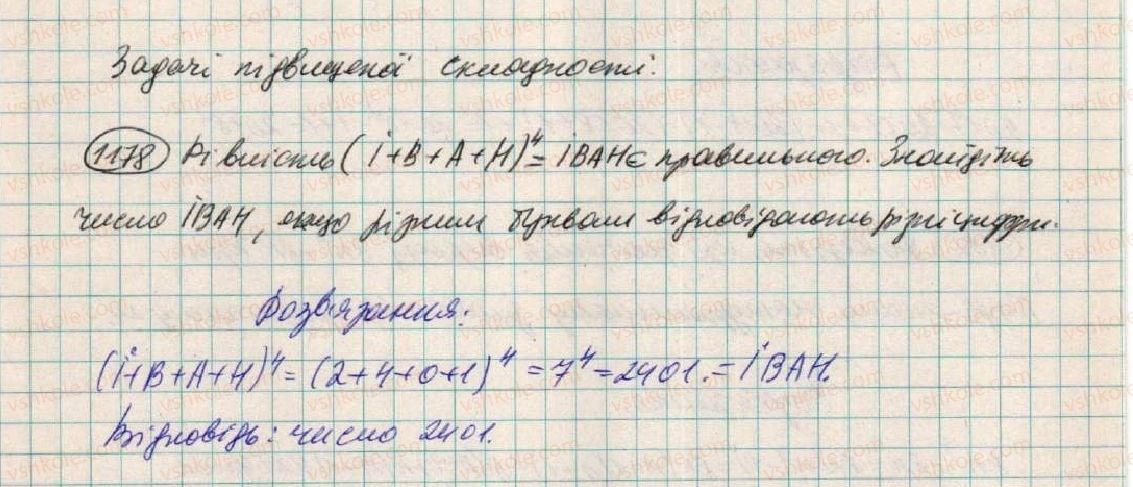 Задачі підвищеної складності.
1178 Рівність (І+В+А+Н)⁴ = ІВАН є правильною. Знайдіть
число ІВАН, якщо різним буквам відповідають різні цифри.
Розв'язання:
(І+В+А+Н)⁴ = (2+4+0+1)⁴ = 7⁴ = 2401. = ІВАН.
Відповідь: число 2401.